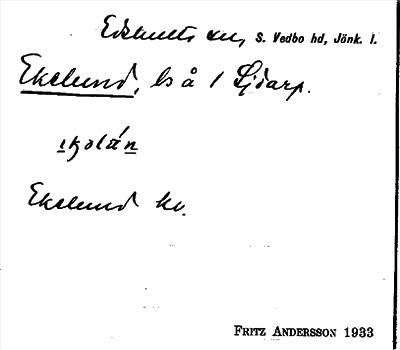 Edshults sn, S. Vedbo hd, Jönk. l.
Ekelund, ls å 1 Sjöarp.
Ekelund kv.
FRITZ ANDERSSON 1933